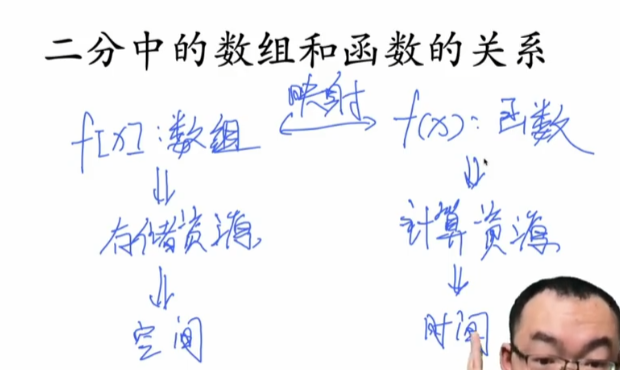 二分中的数组和函数的关系
映射
f[x]:数组 f(x):函数
存储资源 计算资源
空间 时间